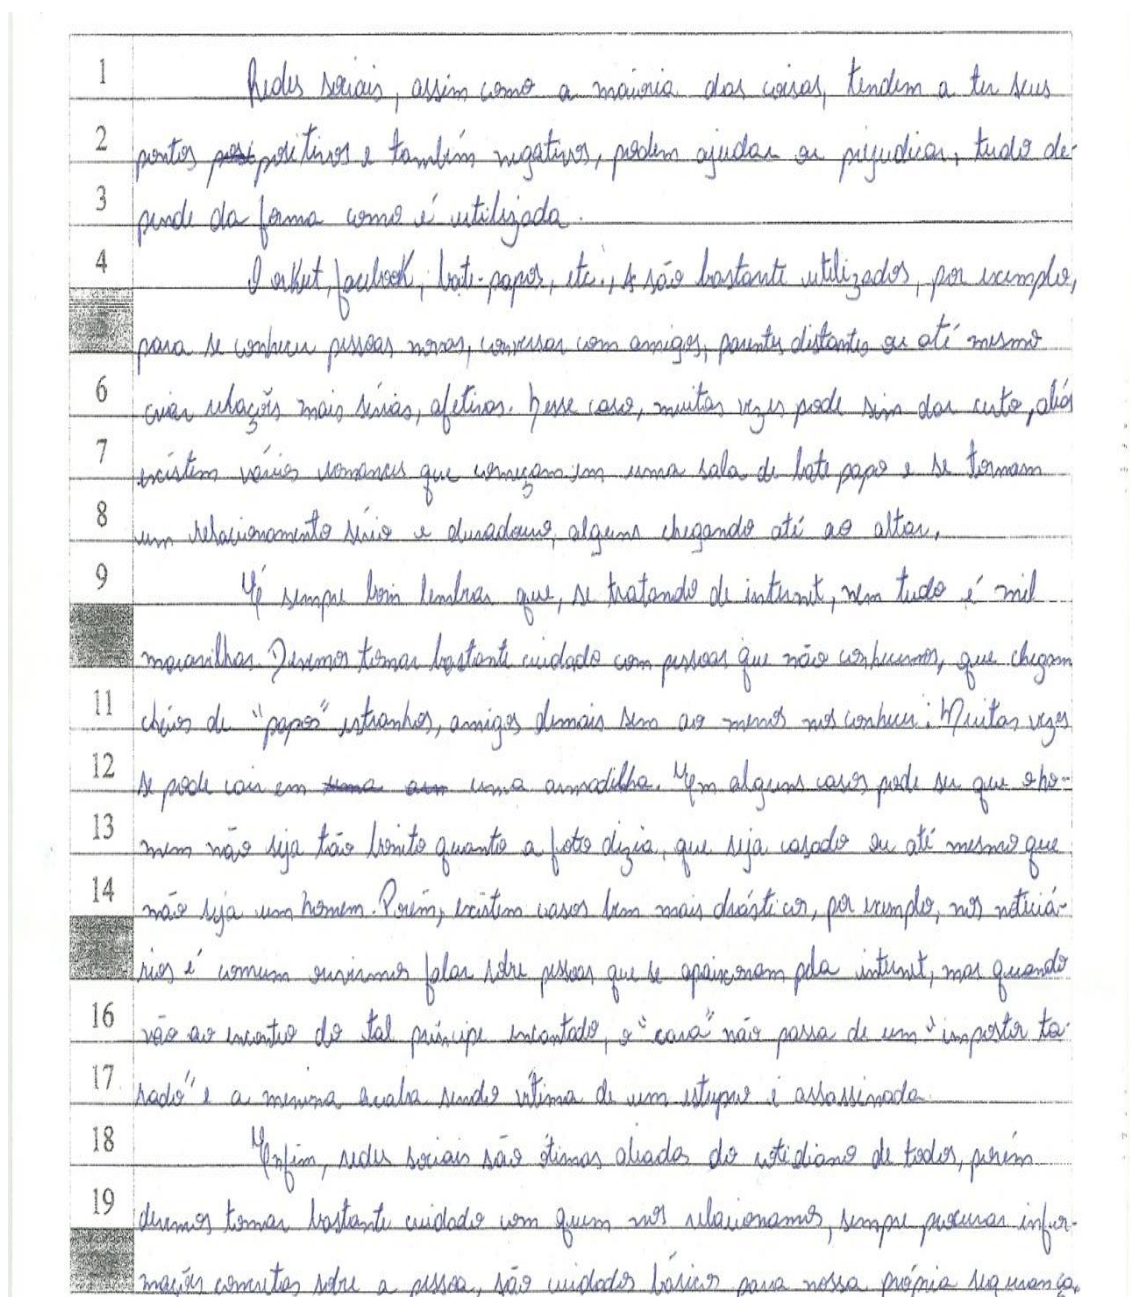 1 Redes sociais, assim como a maioria das coisas, tendem a ter seus
2 pontos posi positivos e também negativos, podem ajudar ou prejudicar, tudo de-
3 pende da forma como é utilizada.
4 O orkut, facebook, bate-papos, etc., s são bastante utilizados, por exemplo,
5 para se conhecer pessoas novas, conversar com amigos, parentes distantes ou até mesmo
6 criar relações mais sérias, afetivas. Nesse caso, muitas vezes pode sim dar certo, aliás
7 existem vários romances que começam em uma sala de bate papo e se tornam
8 um relacionamento sério e duradouro, alguns chegando até ao altar.
9 É sempre bom lembrar que, se tratando de internet, nem tudo é mil
maravilhas. Devemos tomar bastante cuidado com pessoas que não conhecemos, que chegam
11 cheios de "papos" estranhos, amigos demais sem ao menos nos conhecer. Muitas vezes
12 se pode cair em uma arm uma armadilha. Em alguns casos pode ser que o ho-
13 mem não seja tão bonito quanto a foto dizia, que seja casado ou até mesmo que
14 não seja um homem. Porém, existem casos bem mais drásticos, por exemplo, nos noticiá-
rios é comum ouvirmos falar sobre pessoas que se apaixonam pela internet, mas quando
16 vão ao encontro do tal príncipe encantado, o "cara" não passa de um "impostor ta-
17 rado" e a menina acaba sendo vítima de um estupro e assassinada.
18 Enfim, redes sociais são ótimas aliadas do cotidiano de todos, porém
19 devemos tomar bastante cuidado com quem nos relacionamos, sempre procurar infor-
mações concretas sobre a pessoa, são cuidados básicos para nossa própria segurança.